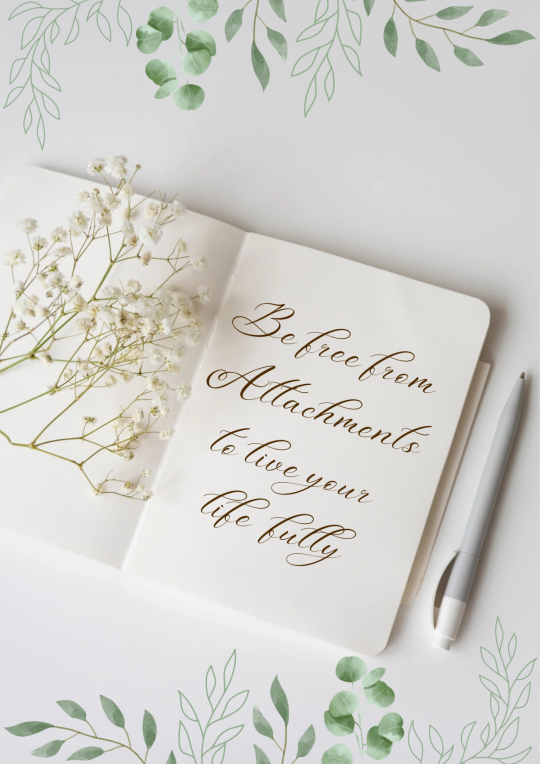 Be free from
Attachments
to live your
life fully